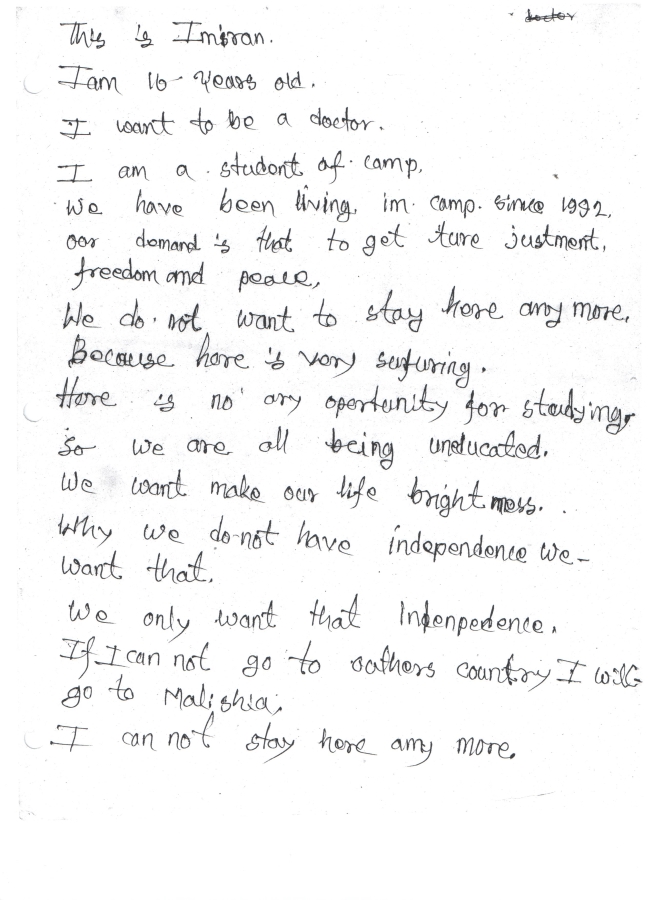 doctor
This is Imran.
I am 16 - Years old.
I want to be a doctor.
I am a student of camp.
We have been living, im camp. since 1992,
oor demand is that to get ture justment,
freedom and peace,
We do not want to stay here any more.
Because here is very sufuring.
Here is no any opertunity for studying,
so we are all being uneducated.
We want make our life brightmess.
Why we do-not have independence we-
want that.
We only want that Indenpedence.
If I can not go to oathers country I will
go to Malishia,
I can not stay here any more.